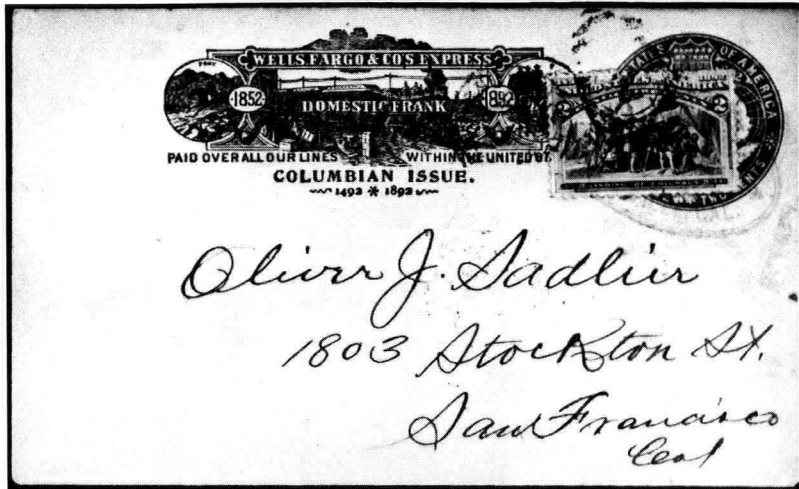 WELLS FARGO & CO'S EXPRESS
PONY
1852 DOMESTIC FRANK 1892
PAID OVER ALL OUR LINES WITHIN THE UNITED ST
COLUMBIAN ISSUE.
1492 * 1892
TATES OF AMERICA
2 2
LANDING OF COLUMBUS
TWO
Oliver J. Sadlier
1803 Stockton St.
San Francisco
Cal